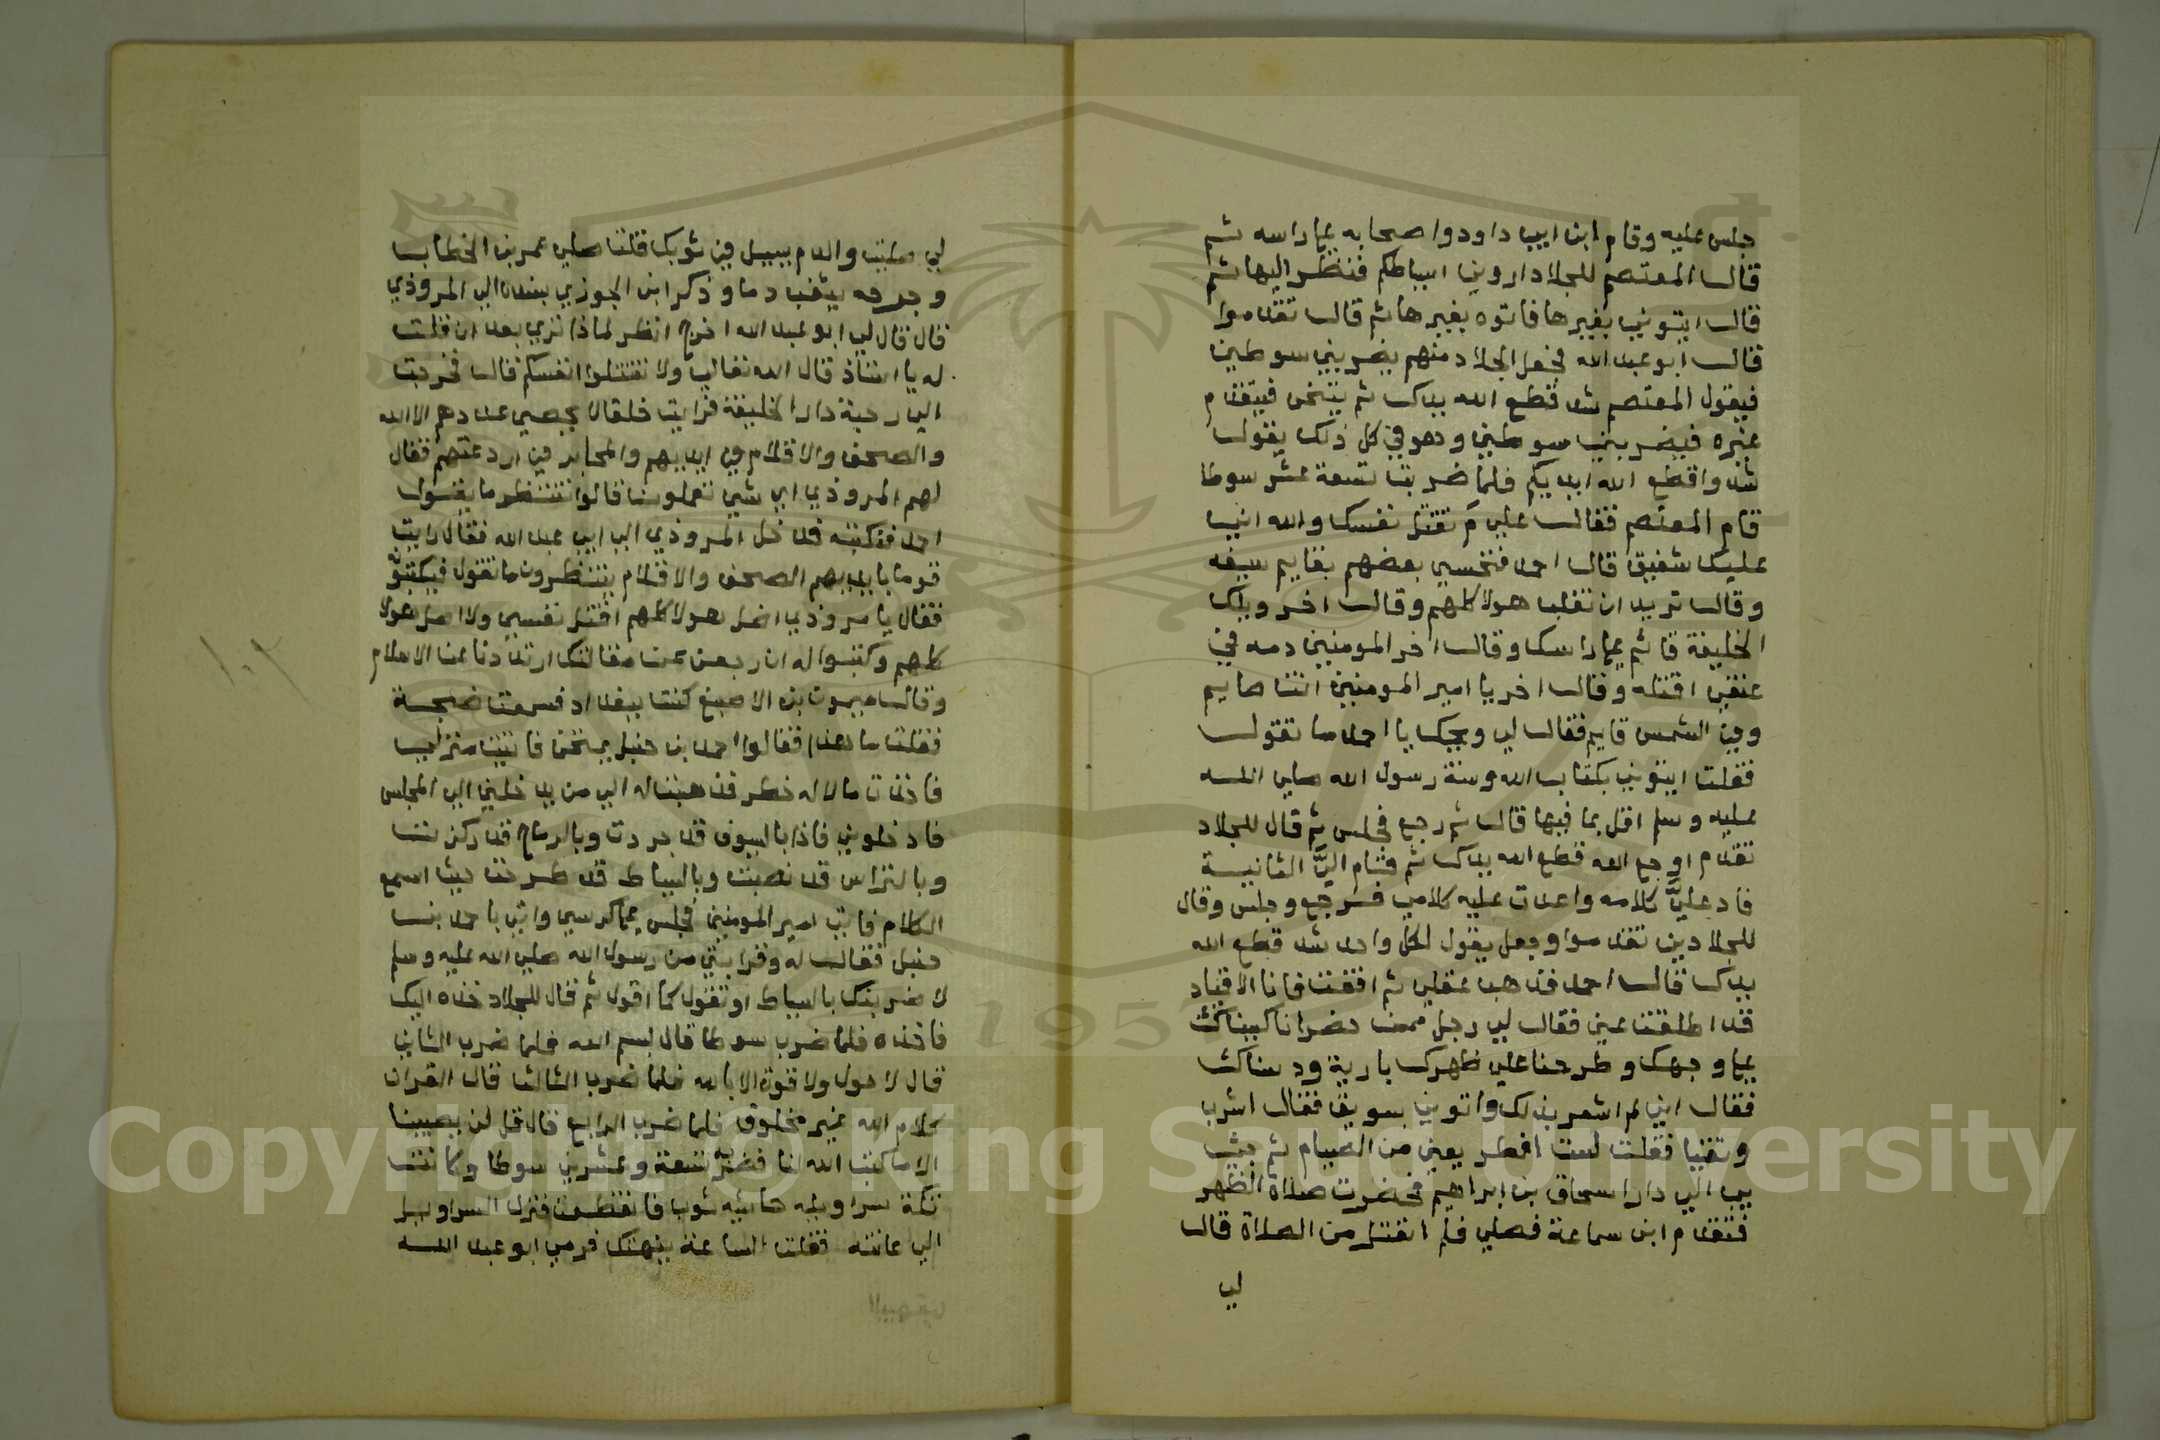 جلس عليه وقام ابن ابي داود واصحابه على راسه ثم
قال المعتصم للجلاد اروني اسياطكم فنظر اليها ثم
قال ايتوني بغيرها فاتوه بغيرها ثم قال تقدموا
قال ابو عبد الله فجعل الجلاد منهم يضربني سوطين
فيقول المعتصم شد قطع الله يدك ثم يتنحى فيتقدم
غيره فيضربني سوطين وهو في كل ذلك يقول
شدوا قطع الله ايديكم فلما ضربت تسعة عشر سوطا
قام المعتصم فقال علي مَ تقتل نفسك والله اني
عليك شفيق قال احمد فنخسني بعضهم بقايم سيفه
وقال تريد ان تغلب هولا كلهم وقال اخر ويلك
الخليفة قائم على راسك وقال اخر المومنين دمه في
عنقي اقتله وقال اخر يا امير المومنين انت صايم
وفي الشمس قايم فقال لي ويحك يا احمد ما تقول
فقلت ايتوني بكتاب الله وسنة رسول الله صلي الله
عليه وسلم اقل بما فيها قال ثم رجع فجلس ثم قال للجلاد
تقدم اوجع الله قطع الله يدك ثم قام اليَّ الثانية
فاد عليَّ كلامه واعدت عليه كلامي فرجع وجلس وقال
للجلادين تقدموا وجعل يقول لكل واحد شد قطع الله
يدك قال احمد فذهب عقلي ثم افقت فاذا الاقياد
قد اطلقت عني فقال لي رجل ممن حضر انا كببناك
على وجهك وطرحنا علي ظهرك بارية ودسناك
فقال اني لم اشعر بذلك واتوني بسويق فقال اشرب
وتقيا فقلت لست افطر يعني من الصيام ثم جيت
بي الي دار اسحاق بن ابراهيم فحضرت صلاة الظهر
فتقدم ابن سماعة فصلي فلم انفتل من الصلاة قال
لي
لي صليت والدم يسيل في ثوبك قلت صلي عمر بن الخطاب
وجرحه يثغب دما وذكر ابن الجوزي بسنده الي المروذي
قال قال لي ابو عبد الله اخرج انظر لماذا تري بعد ان قلت
له يا استاذ قال الله تعالي ولا تقتلوا انفسكم قال فخرجت
الي رحبة دار الخليفة فرايت خلقا لا يحصي عددهم الا الله
والصحف والاقلام في ايديهم والمحابر في اردعتهم فقال
لهم المروذي اي شي تعملون قالوا ننتظر ما يقول
احمد فنكتبه فدخل المروذي الي ابي عبد الله فقال رايت
قوما بايديهم الصحف والاقلام ينتظرون ما تقول فيكتبونه
فقال يا مروذي اضل هولا كلهم اقتل نفسي ولا اضل هولا
كلهم وكتبوا له ان رجعت عن مقالتك ارتددنا عن الاسلام
وقال ميمون بن الاصبغ كنت ببغداد فسمعت ضجة
فقلت ما هذا فقالوا احمد بن حنبل يمتحن فاتيت منزلي
فاخذت مالا له خطر فذهبت له الي من يدخلني الي المجلس
فادخلوني فاذا بالسيوف قد جردت وبالرماح قد ركزت
وبالتراس قد نصبت وبالسياط قد طرحت حيث اسمع
الكلام فاتي امير المومنين فجلس على كرسي واتي باحمد بن
حنبل فقال له وقرابتي من رسول الله صلي الله عليه وسلم
لاضربنك بالسياط او تقول كما اقول ثم قال للجلاد خذه اليك
فاخذه فلما ضرب سوطا قال بسم الله فلما ضرب الثاني
قال لا حول ولا قوة الا بالله فلما ضرب الثالث قال القران
كلام الله غير مخلوق فلما ضرب الرابع قال قل لن يصيبنا
الا ما كتب الله لنا فضربه تسعة وعشرين سوطا وكانت
تكة سراويله حاشيه ثوب فانقطعت فنزل السراويل
الي عانته فقلت الساعة ينهتك فرمي ابو عبد الله
١٠٢